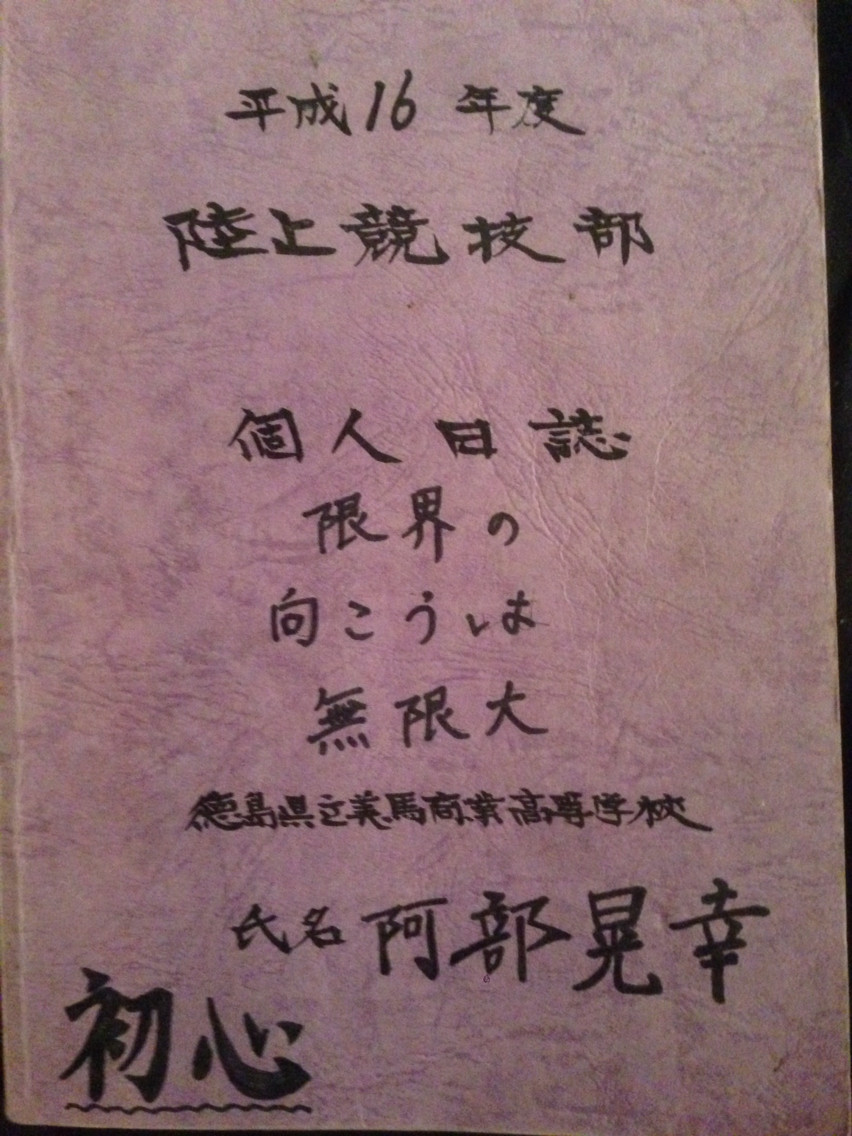 平成16年度
陸上競技部
個人日誌
限界の
向こうは
無限大
徳島県立美馬商業高等学校
氏名 阿部晃幸
初心